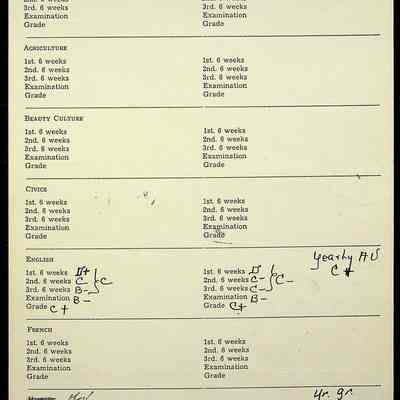 2nd. 6 weeks 2nd. 6 weeks
3rd. 6 weeks 3rd. 6 weeks
Examination Examination
Grade Grade
AGRICULTURE
1st. 6 weeks 1st. 6 weeks
2nd. 6 weeks 2nd. 6 weeks
3rd. 6 weeks 3rd. 6 weeks
Examination Examination
Grade Grade
BEAUTY CULTURE
1st. 6 weeks 1st. 6 weeks
2nd. 6 weeks 2nd. 6 weeks
3rd. 6 weeks 3rd. 6 weeks
Examination Examination
Grade Grade
CIVICS
1st. 6 weeks 1st. 6 weeks
2nd. 6 weeks 2nd. 6 weeks
3rd. 6 weeks 3rd. 6 weeks
Examination Examination
Grade Grade
ENGLISH Yearly AV
C+
1st. 6 weeks D+ 1st. 6 weeks D
2nd. 6 weeks C- C 2nd. 6 weeks C- C-
3rd. 6 weeks B- 3rd. 6 weeks C-
Examination B- Examination B-
Grade C+ Grade C+
FRENCH
1st. 6 weeks 1st. 6 weeks
2nd. 6 weeks 2nd. 6 weeks
3rd. 6 weeks 3rd. 6 weeks
Examination Examination
Grade Grade
yr. gr.